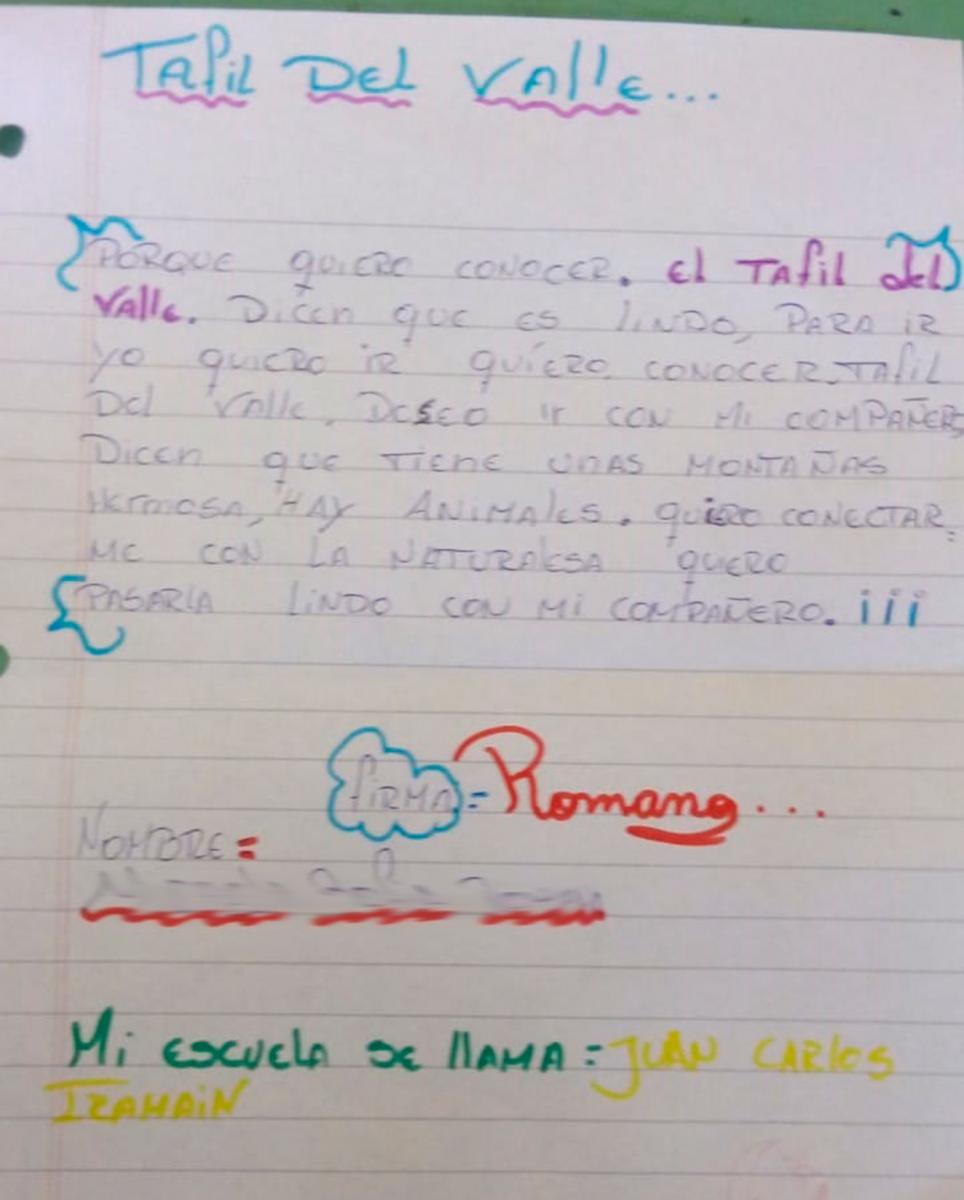 Tafil Del Valle...
PORQUE QUIERO CONOCER. El Tafil del
Valle. Dicen que es lindo, PARA ir
yo quiero ir quiero conocer. Tafil
Del Valle. Deseo ir con mi COMPAÑERO
Dicen que tiene unas MONTAÑAS
Hermosa, HAY ANIMALES. quiero CONECTAR
me con LA NATURALESA quero
PASARLA lindo con mi COMPAÑERO. iii
firma = Romang...
NOMBRE =
Mi escuela se llama = JUAN CARLOS
IRAMAIN